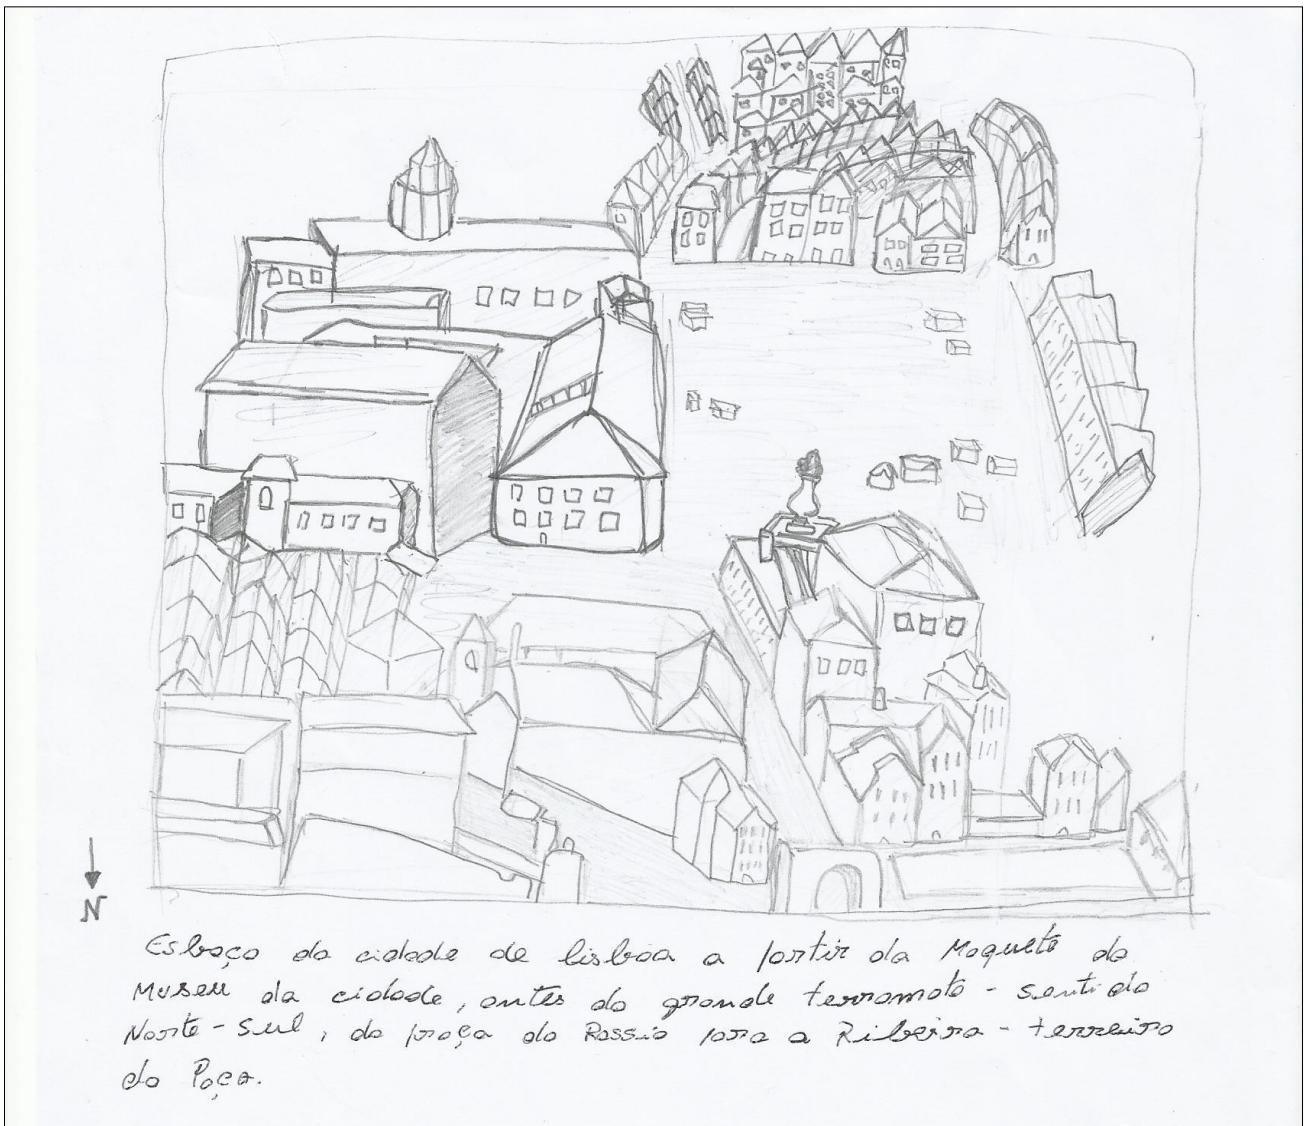 N
Esboço da cidade de lisboa a partir da Maquete do
Museu da cidade, antes do grande terramoto - sentido
Norte - Sul, da praça do Rossio para a Ribeira - terreiro
do Paço.